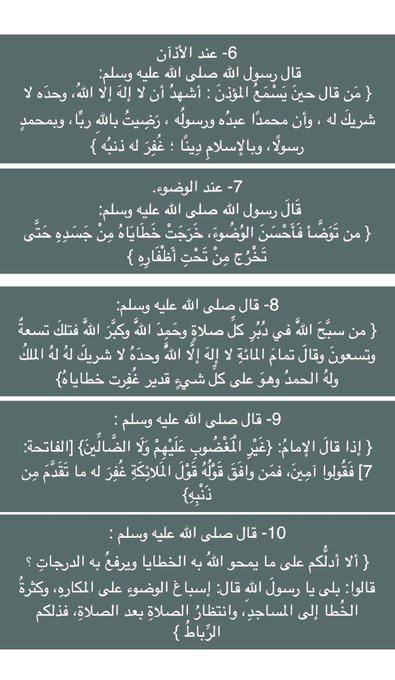 6- عند الأذان
قال رسول الله صلى الله عليه وسلم:
{ مَن قال حينَ يَسْمَعُ المؤذنَ : أشهدُ أن لا إلهَ إلَّا اللهُ، وحدَه لا
شريكَ له ، وأن محمدًا عبدُه ورسولُه ، رَضِيتُ باللهِ ربًّا، وبمحمدٍ
رسولًا، وبالإسلامِ دِينًا ؛ غُفِرَ له ذنبُه }
7- عند الوضوء.
قَالَ رسول الله صلى الله عليه وسلم:
{ من تَوَضَّأ فَأَحْسَنَ الوُضُوءَ، خَرَجَتْ خَطَايَاهُ مِنْ جَسَدِهِ حَتَّى
تَخْرُج مِنْ تَحْتِ أظْفَارِهِ }
8- قال صلى الله عليه وسلم:
{ من سبَّحَ اللهَ في دُبُرِ كلِّ صلاةٍ وحمِدَ اللهَ وكبَّرَ اللهَ فتلكَ تسعةٌ
وتسعونَ وقالَ تمامَ المائةِ لا إلهَ إلَّا اللهُ وحدَهُ لا شريكَ لهُ لهُ الملكُ
ولهُ الحمدُ وهوَ على كلِّ شيءٍ قدير غُفِرت خطاياهُ}
9- قال صلى الله عليه وسلم :
{ إذا قالَ الإمامُ: {غَيْرِ الْمَغْضُوبِ عَلَيْهِمْ وَلَا الضَّالِّينَ} [الفاتحة:
7] فَقُولوا آمِينَ، فمَن وافَقَ قَوْلُهُ قَوْلَ المَلائِكَةِ غُفِرَ له ما تَقَدَّمَ مِن
ذَنْبِهِ}
10- قال صلى الله عليه وسلم :
{ ألا أدلُّكم على ما يمحو اللهُ به الخطايا ويرفعُ به الدرجاتِ ؟
قالوا: بلى يا رسولَ اللهِ قال: إسباغُ الوضوءِ على المكارهِ، وكثرةُ
الخُطا إلى المساجدِ، وانتظارُ الصلاةِ بعد الصلاةِ، فذلكم
الرِّباطُ }